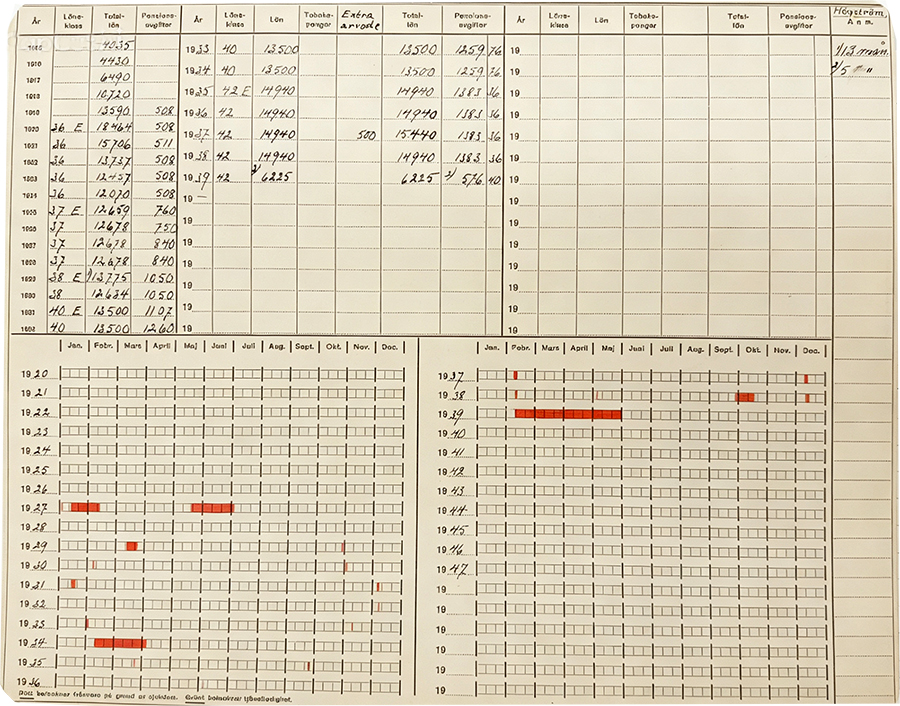 År Löneklass Totallön Pensionsavgifter År Löneklass Lön Tobakspengar Extra arvode Totallön Pensionsavgifter År Löneklass Lön Tobakspengar Totallön Pensionsavgifter Högström, Anm.
1915 4035 1933 40 13500 13500 1259 76 19 1/13 mån.
1916 4430 1934 40 13500 13500 1259 76 19 2/5 " "
1917 6490 1935 42 E 14940 14940 1383 36 19
1918 10720 1936 42 14940 14940 1383 36 19
1919 13590 508 1937 42 14940 500 15440 1383 36 19
1920 36 E 18464 508 1938 42 14940 14940 1383 36 19
1921 36 15706 511 1939 42 2/ 6225 6225 2/ 576 40 19
1922 36 13737 508 19 — 19
1923 36 12457 508 19 19
1924 36 12070 508 19 19
1925 37 E 12659 760 19 19
1926 37 12678 750 19 19
1927 37 12678 840 19 19
1928 37 12678 840 19 19
1929 38 E 1/13775 1050 19 19
1930 38 12624 1050 19 19
1931 40 E 13500 1107 19 19
1932 40 13500 1260 19 19
Jan. Febr. Mars April Maj Juni Juli Aug. Sept. Okt. Nov. Dec. Jan. Febr. Mars April Maj Juni Juli Aug. Sept. Okt. Nov. Dec.
1920 1937
1921 1938
1922 1939
1923 1940
1924 1941
1925 1942
1926 1943
1927 1944
1928 1945
1929 1946
1930 1947
1931 19
1932 19
1933 19
1934 19
1935 19
1936 19
Rött betecknar frånvaro på grund av sjukdom. Grönt betecknar tjänstledighet.